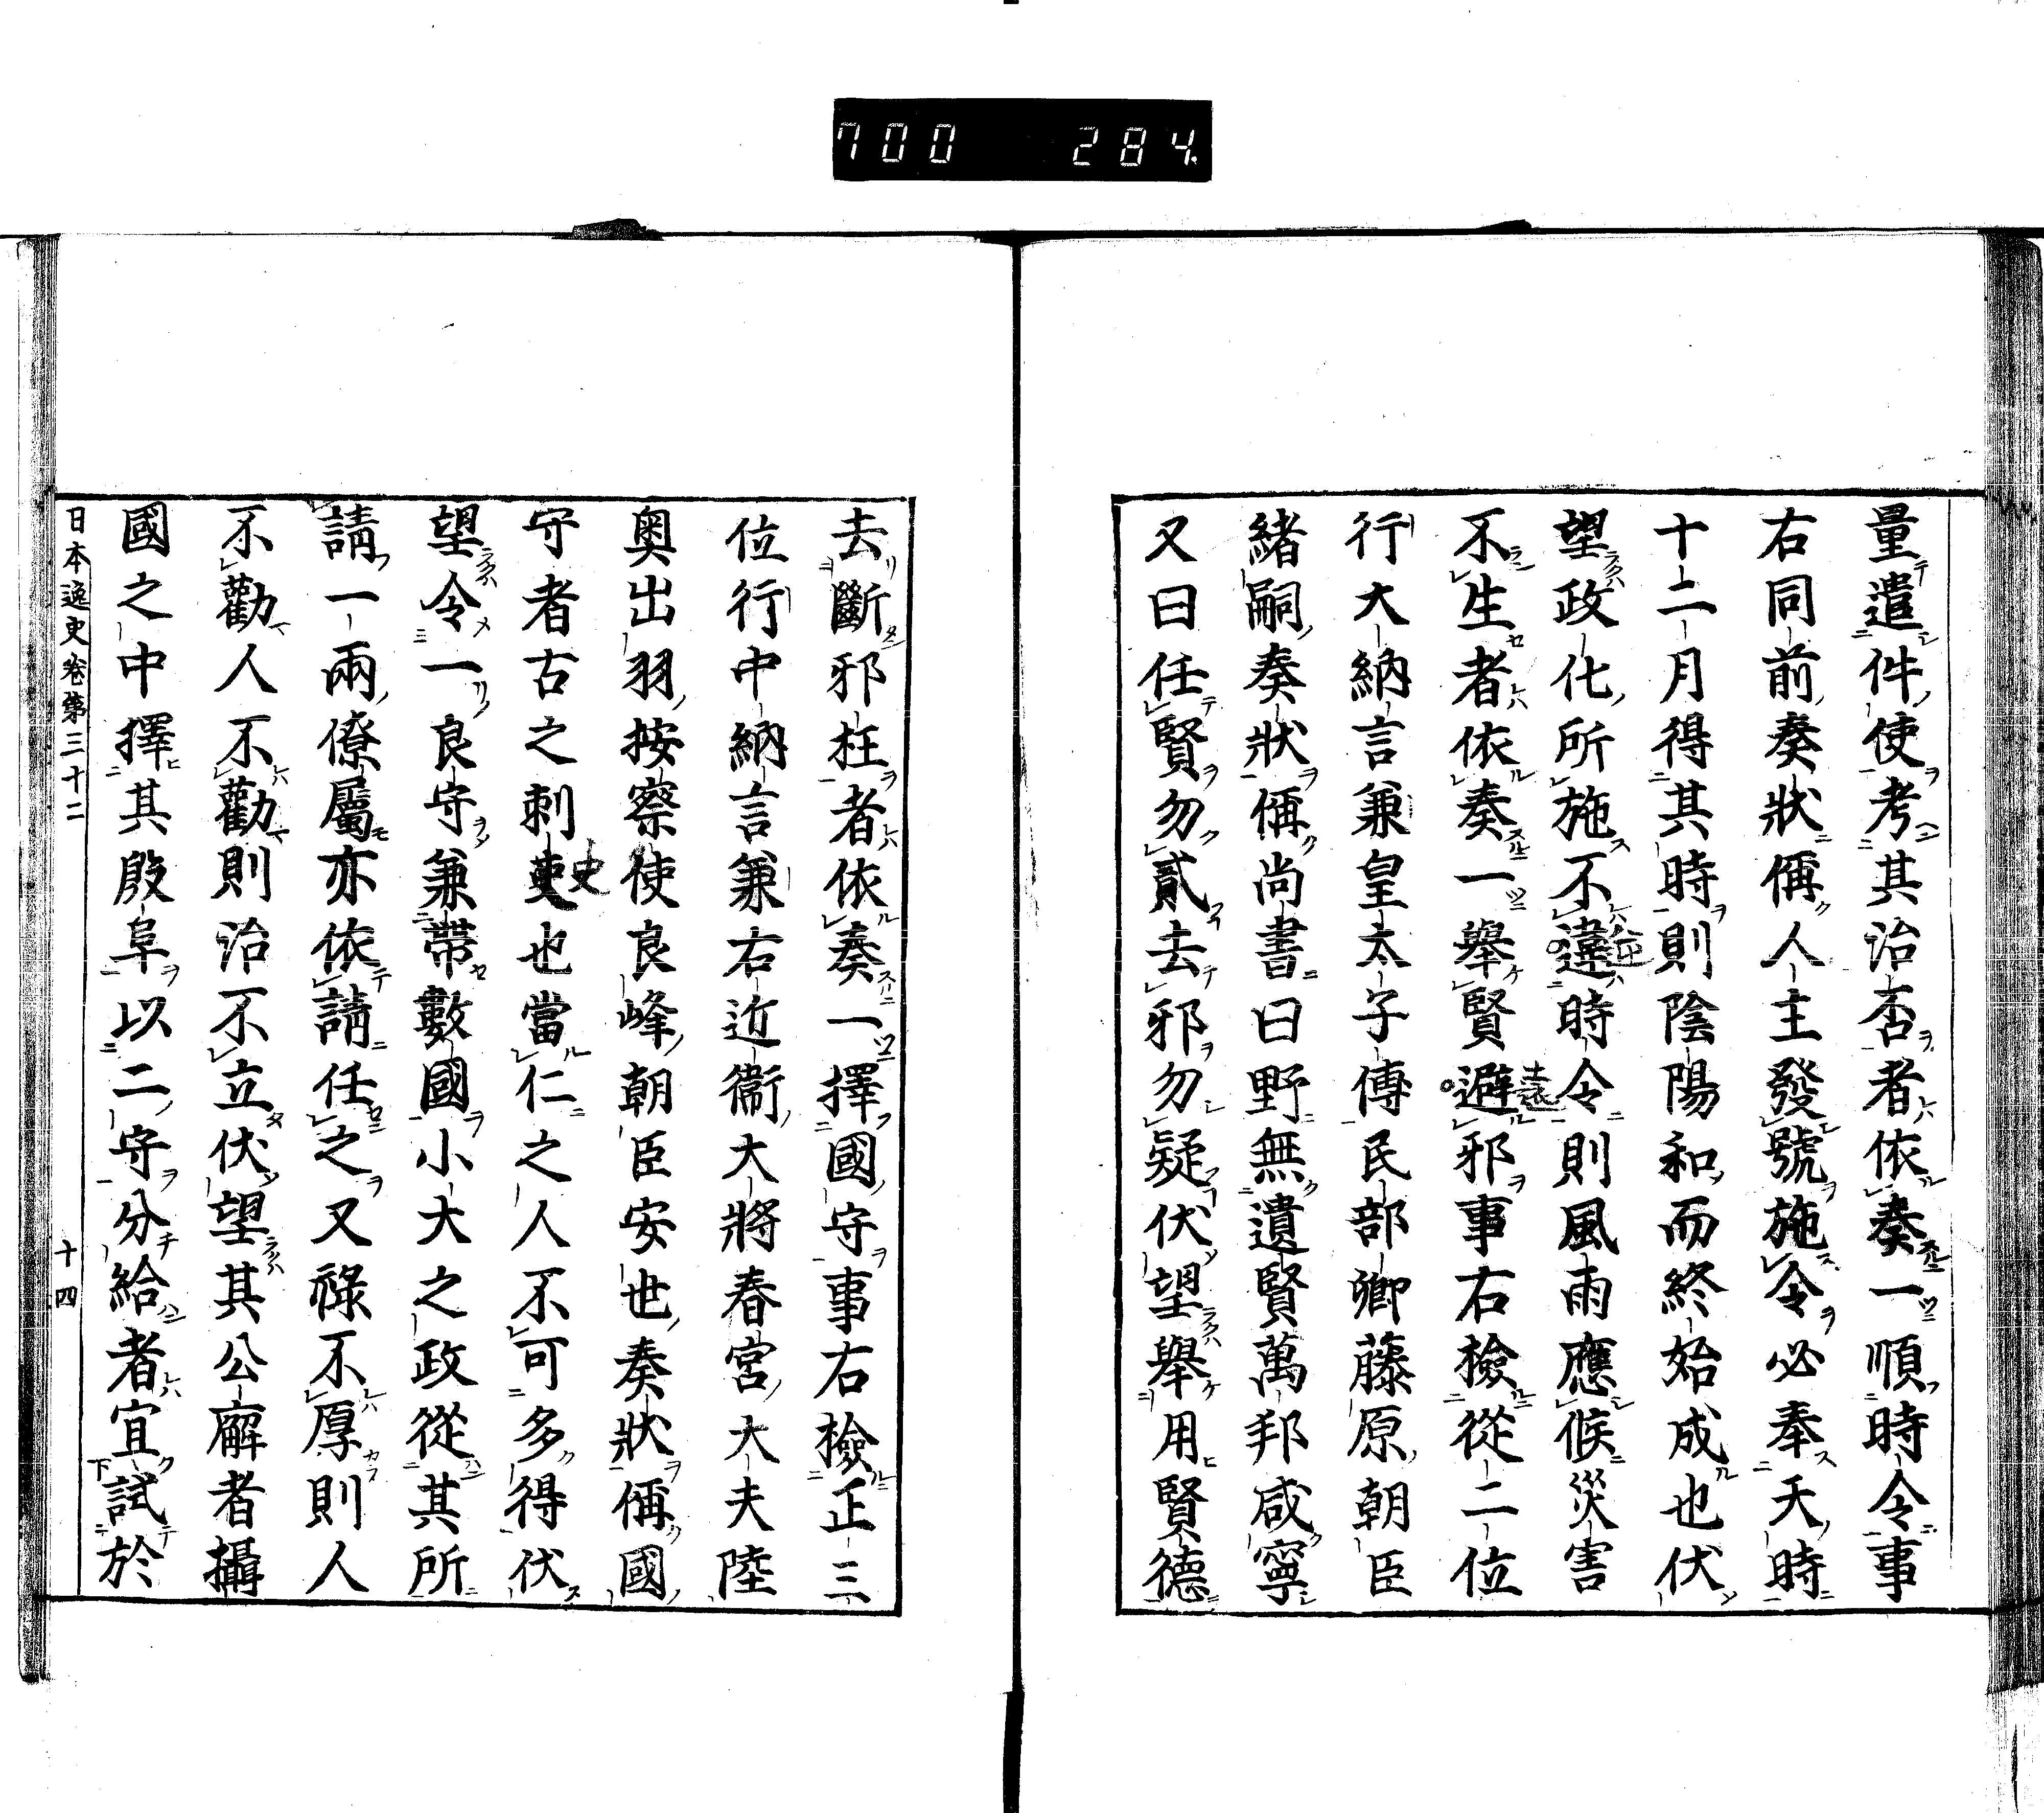 700 284
量遣件使考其治否者依奏一順時令事
右同前奏狀偁人主發號施令必奉天時
十二月得其時則陰陽和而終始成也伏
望政化所施不違時令則風雨應候災害
不生者依奏一舉賢避邪事右檢從二位
行大納言兼皇太子傅民部卿藤原朝臣
緒嗣奏狀偁尚書曰野無遺賢萬邦咸寧
又曰任賢勿貳去邪勿疑伏望舉用賢德
去斷邪枉者依奏一擇國守事右檢正三
位行中納言兼右近衞大將春宮大夫陸
奧出羽按察使良峰朝臣安世奏狀偁國
守者古之刺吏也當仁之人不可多得伏
史
望令一良守兼帶數國小大之政從其所
請一兩僚屬亦依請任之又祿不厚則人
不勸人不勸則治不立伏望其公廨者攝
國之中擇其殷阜以二守分給者宜試於
日本逸史卷第三十二 十四